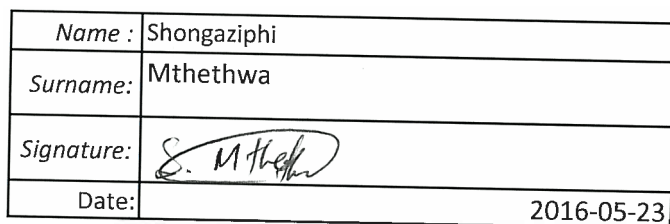 Name : Shongaziphi
Surname: Mthethwa
Signature: S. Mthethwa
Date: 2016-05-23